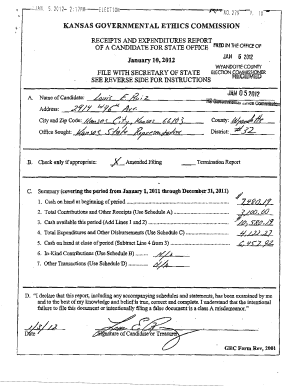 JAN 5, 2012 2:17PM ELECTION NO. 279 P. 18
KANSAS GOVERNMENTAL ETHICS COMMISSION
RECEIPTS AND EXPENDITURES REPORT
OF A CANDIDATE FOR STATE OFFICE
FILED IN THE OFFICE OF
January 10, 2012
JAN 5 2012
FILE WITH SECRETARY OF STATE
SEE REVERSE SIDE FOR INSTRUCTIONS
WYANDOTTE COUNTY
ELECTION COMMISSIONER
JAN 05 2012
A. Name of Candidate: Louis E Ruiz
Address: 2914 W 46th Ave
City and Zip Code: Kansas City, Kansas 66103 County: Wyandotte
Office Sought: Kansas State Representative District:
B. Check only if appropriate: X Amended Filing Termination Report
C. Summary (covering the period from January 1, 2011 through December 31, 2011)
1. Cash on hand at beginning of period 7480.19
2. Total Contributions and Other Receipts (Use Schedule A) 3,100.00
3. Cash available this period (Add Lines 1 and 2) 10,580.19
4. Total Expenditures and Other Disbursements (Use Schedule C)
5. Cash on hand at close of period (Subtract Line 4 from 3)
6. In-Kind Contributions (Use Schedule B) N/A
7. Other Transactions (Use Schedule D) N/A
D. "I declare that this report, including any accompanying schedules and statements, has been examined by me
and to the best of my knowledge and belief is true, correct and complete. I understand that the intentional
failure to file this document or intentionally filing a false document is a class A misdemeanor."
Date Signature of Candidate or Treasurer
GEC Form Rev, 2001